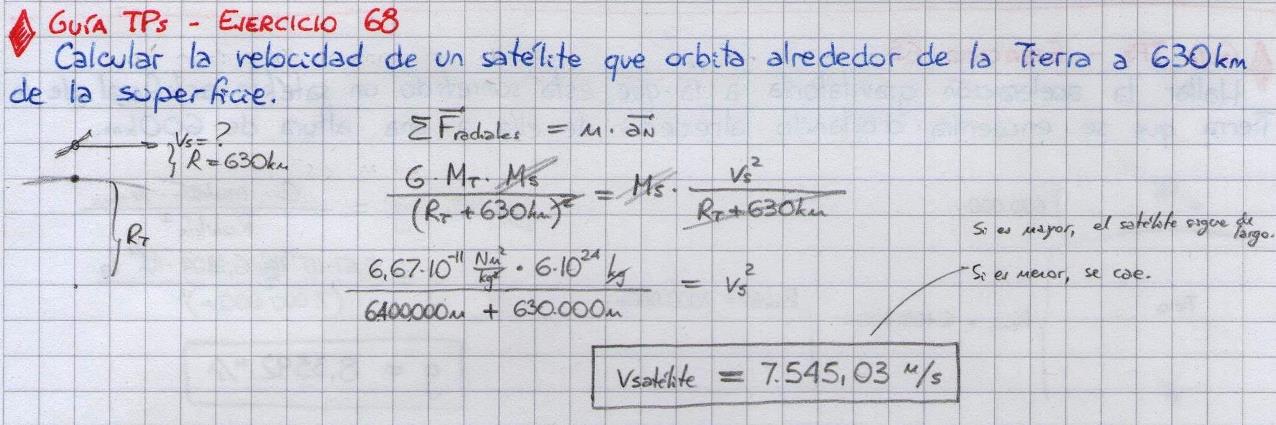 GUÍA TPs - EJERCICIO 68
Calcular la velocidad de un satélite que orbita alrededor de la Tierra a 630km
de la superficie.
Vs = ?
R = 630km
RT
ΣF radiales = m · aN
G · MT · Ms / (RT + 630km)² = Ms · Vs² / RT + 630km
6,67·10⁻¹¹ Nm²/kg² · 6·10²⁴ kg / 6400000m + 630.000m = Vs²
Si es mayor, el satélite sigue de largo.
Si es menor, se cae.
Vsatélite = 7.545,03 m/s